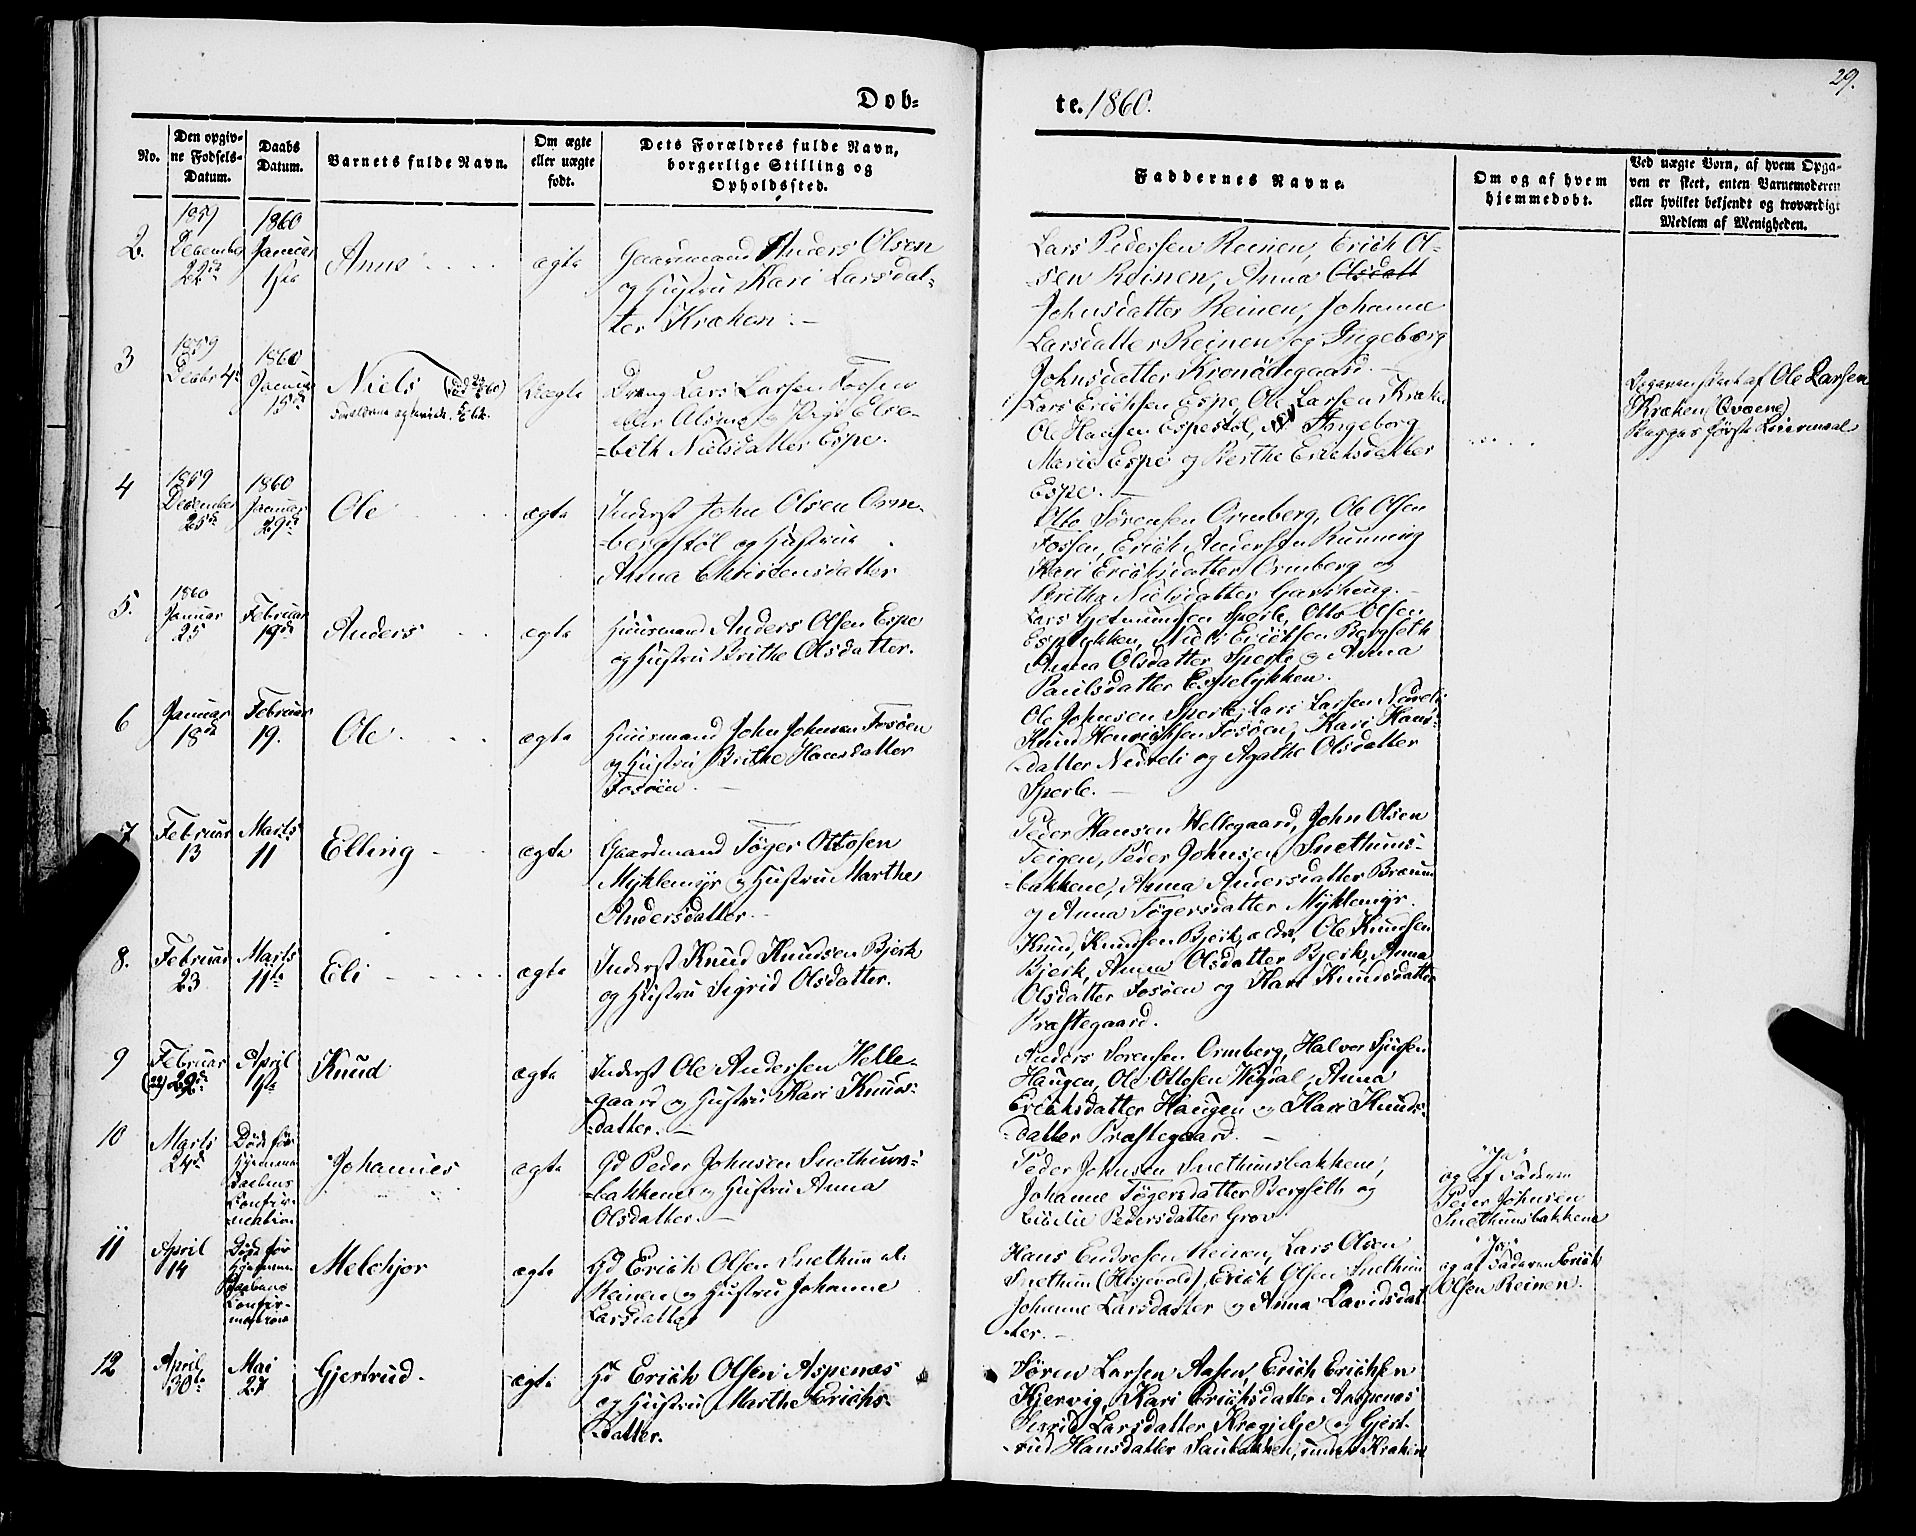 29.
Dob-
te. 1860.
No.
Den opgiv-
ne Fodsels-
Datum.
Daabs
Datum.
Barnets fulde Navn.
Om ægte
eller uægte
født.
Dets Forældres fulde Navn,
borgerlige Stilling og
Opholdssted.
Faddernes Navne.
Om og af hvem
hjemmedobt.
Ved uægte Born, af hvem Opga-
ven er skeet, enten Barnemoderen
eller hvilket bekjendt og troværdigt
Medlem af Menigheden.
2.
1859
December
22de
1860
Januar
1ste
Anne
ægte
Gaardmand Anders Olsen
og Hustru Kari Larsdat-
ter Kræken.
Lars Pedersen Reinen, Erich Ol-
sen Reinen, Anna Olsdatt
Johnsdatter Reinen, Johanne
Larsdatter Reinen og Ingeborg
Johnsdatter Kronødegaard.
3
1859
Decbr 4de
1860
Januar
15de
Niels
Uægte
Dreng Lars Larsen Fossen
eller Alsmo og Pige Else-
beth Nielsdatter Espe.
Lars Erichsen Espe, Ole Larsen Kræken
Ole Hansen Espestøl, Ingeborg
Marie Espe og Berthe Erichsdatter
Espe.
Opgaven skeet af Ole Larsen
Kræken (Qvaene)
Begges første Leiermaal
4
1859
December
25de
1860
Januar
29de
Ole
ægte
Inderst John Olsen Orm-
bergstøl og Hustrue
Anna Christensdatter
Otto Sørensen Ormberg, Ole Olsen
Fossen, Erich Andersen Running
Kari Erichsdatter Ormberg og
Brithe Nielsdatter
5.
1860
Januar
25
Februar
19de
Anders
ægte
Huusmand Anders Olsen Espe
og Hustru Brithe Olsdatter.
Lars Sperle, Otto Olsen
Espelykken, Niels Erichsen Bergseth
Anna Olsdatter Sperle og Anna
Paulsdatter Espelykken.
6
Januar
18de
Februar
19.
Ole
ægte
Huusmand John Johnsen Fosøen
og Hustru Brithe Hansdatter
Fosøen
Ole Johnsen Sperle, Lars Larsen Nedreli
Knud Henrichsen Fosøen, Kari Hans-
datter Nedreli og Agathe Olsdatter
Sperle.
7
Februar
13
Marts
11
Elling
ægte
Gaardmand Tøger Ottosen
Myklemyr og Hustru Marthe
Andersdatter.
Peder Hansen Hellegaard, John Olsen
Teigen, Peder Johnsen Snethuns-
bakkene, Anna Andersdatter Bræum
og Anna Tøgersdatter Myklemyr.
8.
Februar
23
Marts
11te
Eli
ægte
Inderst Knud Knudsen Bjerk
og Hustru Sigrid Olsdatter.
Knud Knudsen Bjerk, ældr, Ole Knudsen
Bjerk, Anna Olsdatter Bjerk, Anna
Olsdatter Fosøen og Kari Knudsdatter
Præstegaard.
9
Februar
(22) 22de
April
1ste
Knud
ægte
Inderst Ole Andersen Helle-
gaard og Hustru Kari Knuds-
datter.
Anders Sørensen Ormberg, Halvor Sjursen
Haugen, Ole Ottosen Vigdal, Anna
Erichsdatter Haugen og Kari Knuds-
datter Præstegaard.
10
Marts
24de
Død før
Hjemme
Daabens
Confir-
mation
Johannes
ægte
Gd Peder Johnsen Snethuns-
bakkene og Hustru Anna
Olsdatter.
Peder Johnsen Snethunsbakkene,
Johanne Tøgersdatter Bergseth og
Pedersdatter Grov
"Ja"
og af Faderen
Peder Johnsen
Snethunsbakkene
11
April
14
Død før
Hjemme
Daabens
Confir-
mation
Melchjor
ægte
Gd Erich Olsen Snethun al.
Reinen og Hustru Johanne
Larsdatter
Hans Endresen Reinen, Lars Olsen
Snethun, Erich Olsen Snethun
Johanne Larsdatter og Anna Davidsdat-
ter.
"Ja"
og af Faderen Erich
Olsen Reinen.
12
April
30te
Mai
27
Gjertrud.
ægte
Gd Erich Olsen Aspenæs
og Hustru Marthe Erichs-
datter.
Søren Larsen Aasen, Erich Erichsen
Kjervig, Kari Erichsdatter Aspenæs
Sigrid Larsdatter og Gjert-
rud Hansdatter Kræken